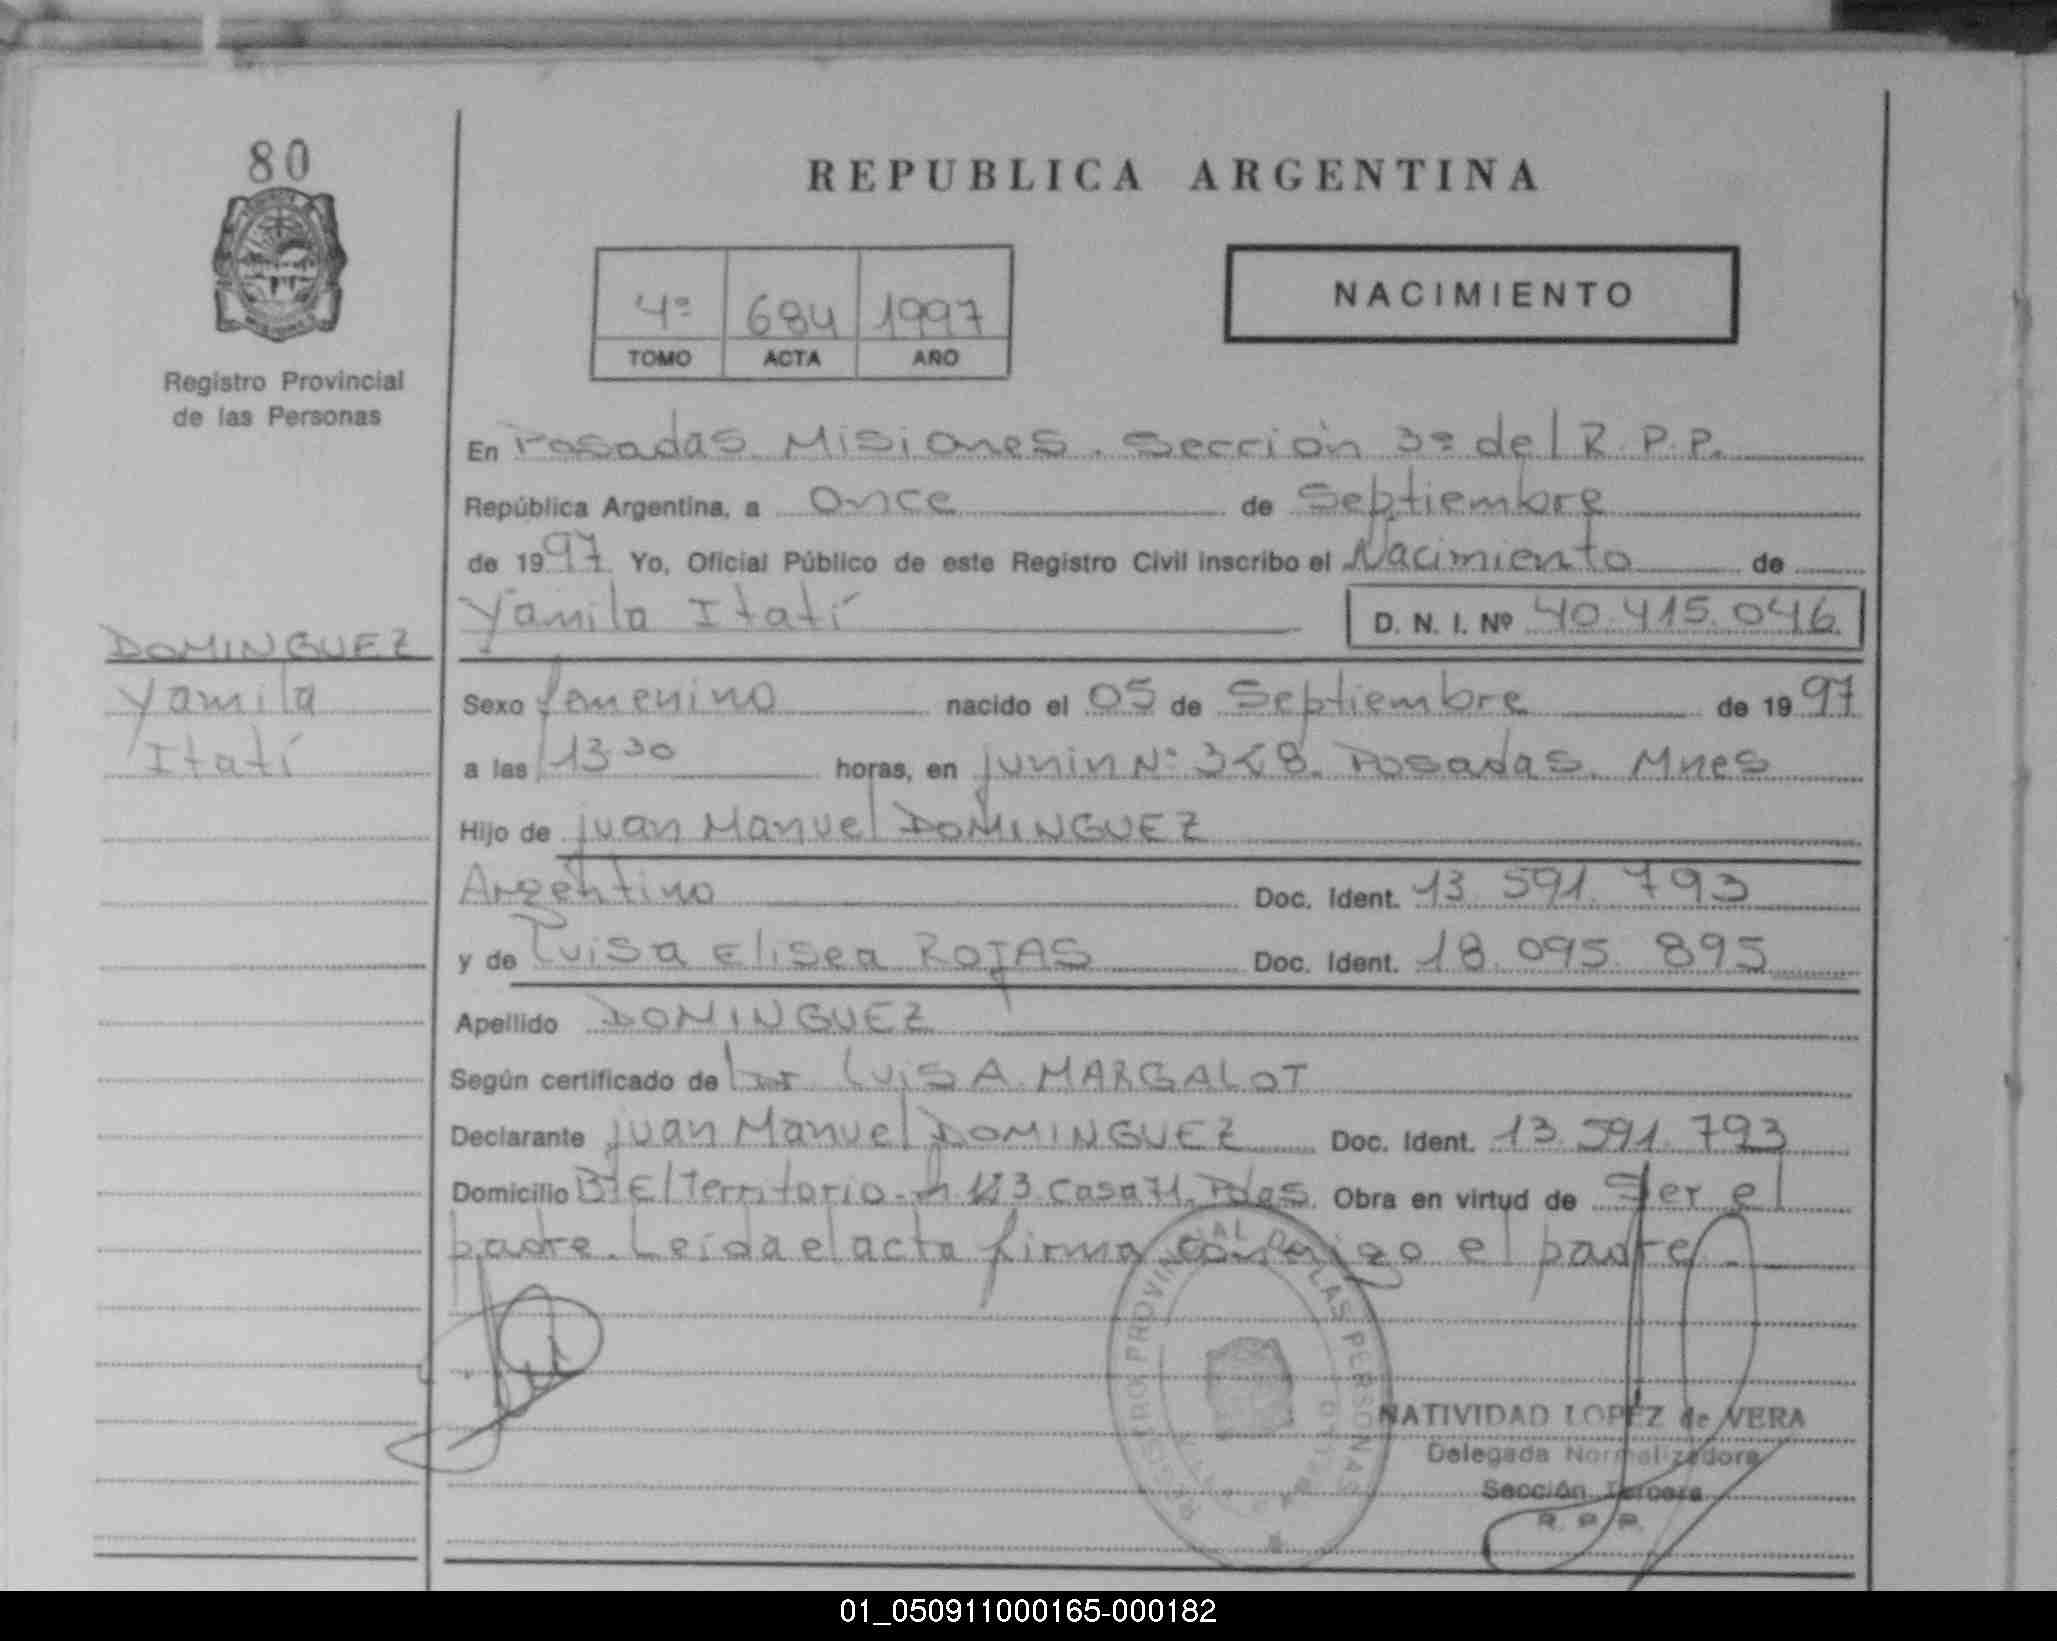 80
REPUBLICA ARGENTINA
NACIMIENTO
4º 684 1997
TOMO ACTA AÑO
Registro Provincial
de las Personas
En Posadas Misiones. Sección 3º del R.P.P.
República Argentina, a Once de Septiembre
de 1997 Yo, Oficial Público de este Registro Civil inscribo el Nacimiento de
Yamila Itatí D. N. I. Nº 40.415.046
DOMINGUEZ
Yamila
Itatí
Sexo femenino nacido el 05 de Septiembre de 1997
a las 13 30 horas, en Junin Nº 328. Posadas. Mnes
Hijo de Juan Manuel DOMINGUEZ
Argentino Doc. Ident. 13.591.793
y de Luisa Elisea ROJAS Doc. Ident. 18.095.895
Apellido DOMINGUEZ
Según certificado de Luis A. MARGALOT
Declarante Juan Manuel DOMINGUEZ Doc. Ident. 13.591.793
Domicilio Bº El Territorio Casa 71. Pdas. Obra en virtud de Ser el
padre. Leída el acta firma conmigo el padre.
REGISTRO PROVINCIAL DE LAS PERSONAS
NATIVIDAD LOPEZ de VERA
Delegada Normalizadora
Sección Tercera
R. P. P.
01_050911000165-000182